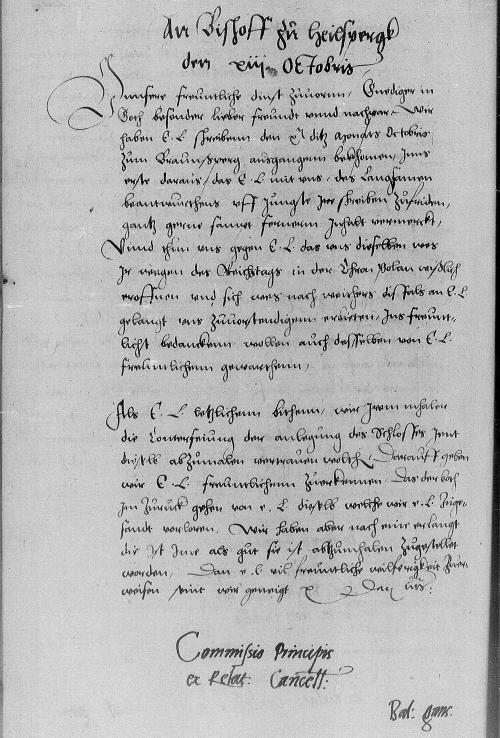 An Bishoff zu Heilspergk
den xiij. Octobris
Unnsere freuntliche dinst zuuornn, Gnediger in
Got besonder lieber freundt unnd nachpar, Wir
haben E. L. schreibenn den x ditz Monats Octobris
zum Braunsperg ausgangenn bekhomen, Inns
erste daraus, das E. L. mit uns, des Langsamen
beantwurthens uff Jungste Jre schreiben zufriden,
gantz gerne sampt fernerm Inhalt vermerckt,
Unnd thun uns gegen E. L. das uns dieselben wes
Jr wegen des Reichstags in der Chron Polan
eroffnen und sich wes nach weithers disfals an E. L.
gelangt uns zuuorstendigenn erbieten, Jns freunt-
licht bedancken, wollen auch desselben von E. L.
freuntlichenn gewarthenn,
Als E. L. letzlichenn bithenn, wir
die Conterfeiung der anlegung des Schlosses
abzumalen vertrauen wolth, Darauff geben
wir E. L. freuntlichenn zuerkennen, das der both
Jm zuruck gehen von e. L. welche wir e. L. zuge-
sandt vorloren, Wir haben aber nach eine erlangt
die ist Jme als gut sie ist abzumhalen zugestellet
worden, Dan e. l. vil freuntliche wilferigkeit zuer-
weisen seint wir geneigt
Commissio Principis
ex Relat: Cancell:
Bal: gans.